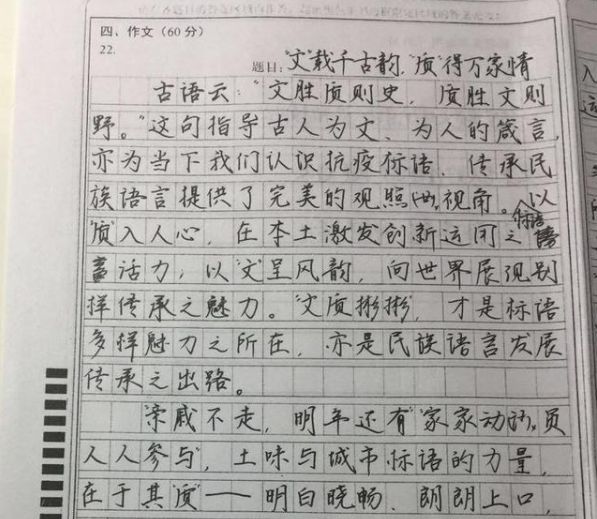 四、作文(60分)
22.
题目:“文”载千古韵,“质”得万家情
古语云:“文胜质则史,质胜文则
野。”这句指导古人为文、为人的箴言,
亦为当下我们认识抗疫标语、传承民
族语言提供了完美的观照视角。以
“质”入人心,在本土激发创新运用之标语
活力,以“文”呈风韵,向世界展现别
样传承之魅力。“文质彬彬”,才是标语
多样魅力之所在,亦是民族语言发展
传承之出路。
“亲戚不走,明年还有”“家家动员,
人人参与”,土味与城市标语的力量,
在于其“质”——明白晓畅、朗朗上口,
入
远